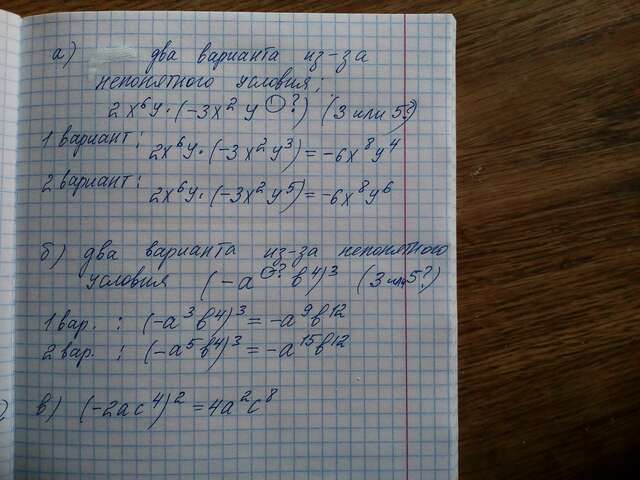 а) два варианта из-за
непонятного условия;
2x⁶y·(-3x²y⁽⁻⁾?) (3 или 5?)
1 вариант: 2x⁶y·(-3x²y³)=-6x⁸y⁴
2 вариант: 2x⁶y·(-3x²y⁵)=-6x⁸y⁶
б) два варианта из-за непонятного
условия (-a⁽⁻⁾?b⁴)³ (3 или 5?)
1 вар. : (-a³b⁴)³=-a⁹b¹²
2 вар. : (-a⁵b⁴)³=-a¹⁵b¹²
в) (-2ac⁴)²=4a²c⁸